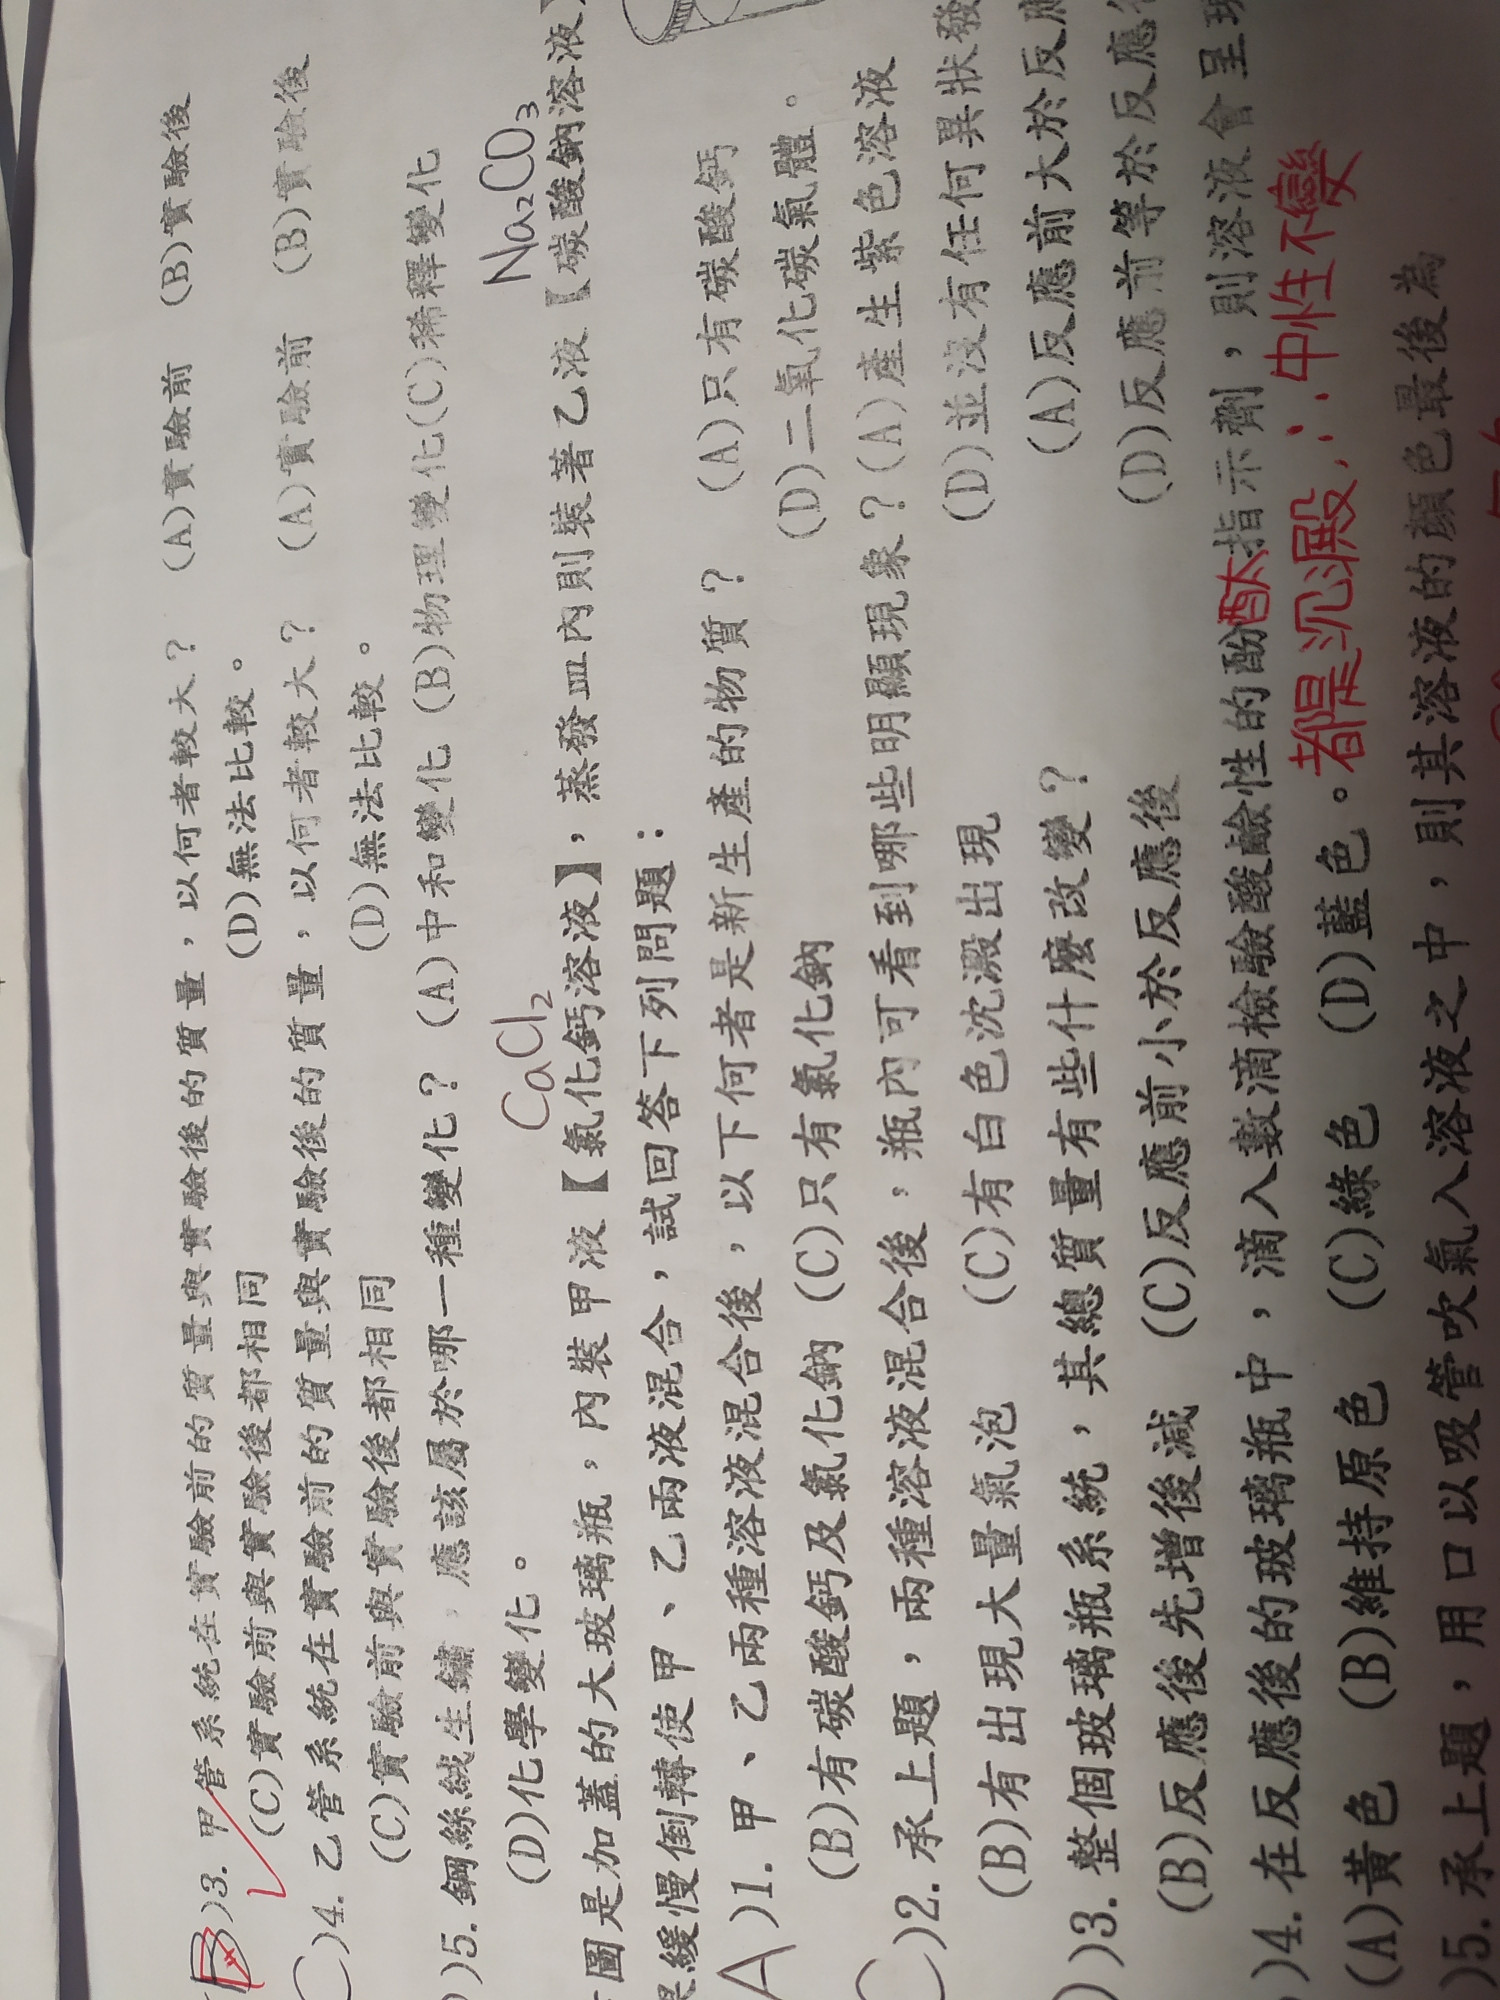 )3. 甲管系統在實驗前的質量與實驗後的質量，以何者較大？ (A)實驗前 (B)實驗後
(C)實驗前與實驗後都相同 (D)無法比較。
)4. 乙管系統在實驗前的質量與實驗後的質量，以何者較大？ (A)實驗前 (B)實驗後
(C)實驗前與實驗後都相同 (D)無法比較。
)5. 鋼絲絨生鏽，應該屬於哪一種變化？ (A)中和變化 (B)物理變化(C)稀釋變化
(D)化學變化。
CaCl₂ Na₂CO₃
圖是加蓋的大玻璃瓶，內裝甲液【氯化鈣溶液】，蒸發皿內則裝著乙液【碳酸鈉溶液】
緩慢倒轉使甲、乙兩液混合，試回答下列問題：
A)1. 甲、乙兩種溶液混合後，以下何者是新生產的物質？ (A)只有碳酸鈣
(B)有碳酸鈣及氯化鈉 (C)只有氯化鈉 (D)二氧化碳氣體。
)2. 承上題，兩種溶液混合後，瓶內可看到哪些明顯現象？(A)產生紫色溶液
(B)有出現大量氣泡 (C)有白色沉澱出現 (D)並沒有任何異狀發
)3. 整個玻璃瓶系統，其總質量有些什麼改變？ (A)反應前大於反應
(B)反應後先增後減 (C)反應前小於反應後 (D)反應前等於反應後
)4. 在反應後的玻璃瓶中，滴入數滴檢驗酸鹼性的酚酞指示劑，則溶液會呈現
(A)黃色 (B)維持原色 (C)綠色 (D)藍色。都是沉澱，∴中性不變
)5. 承上題，用口以吸管吹氣入溶液之中，則其溶液的顏色最後為